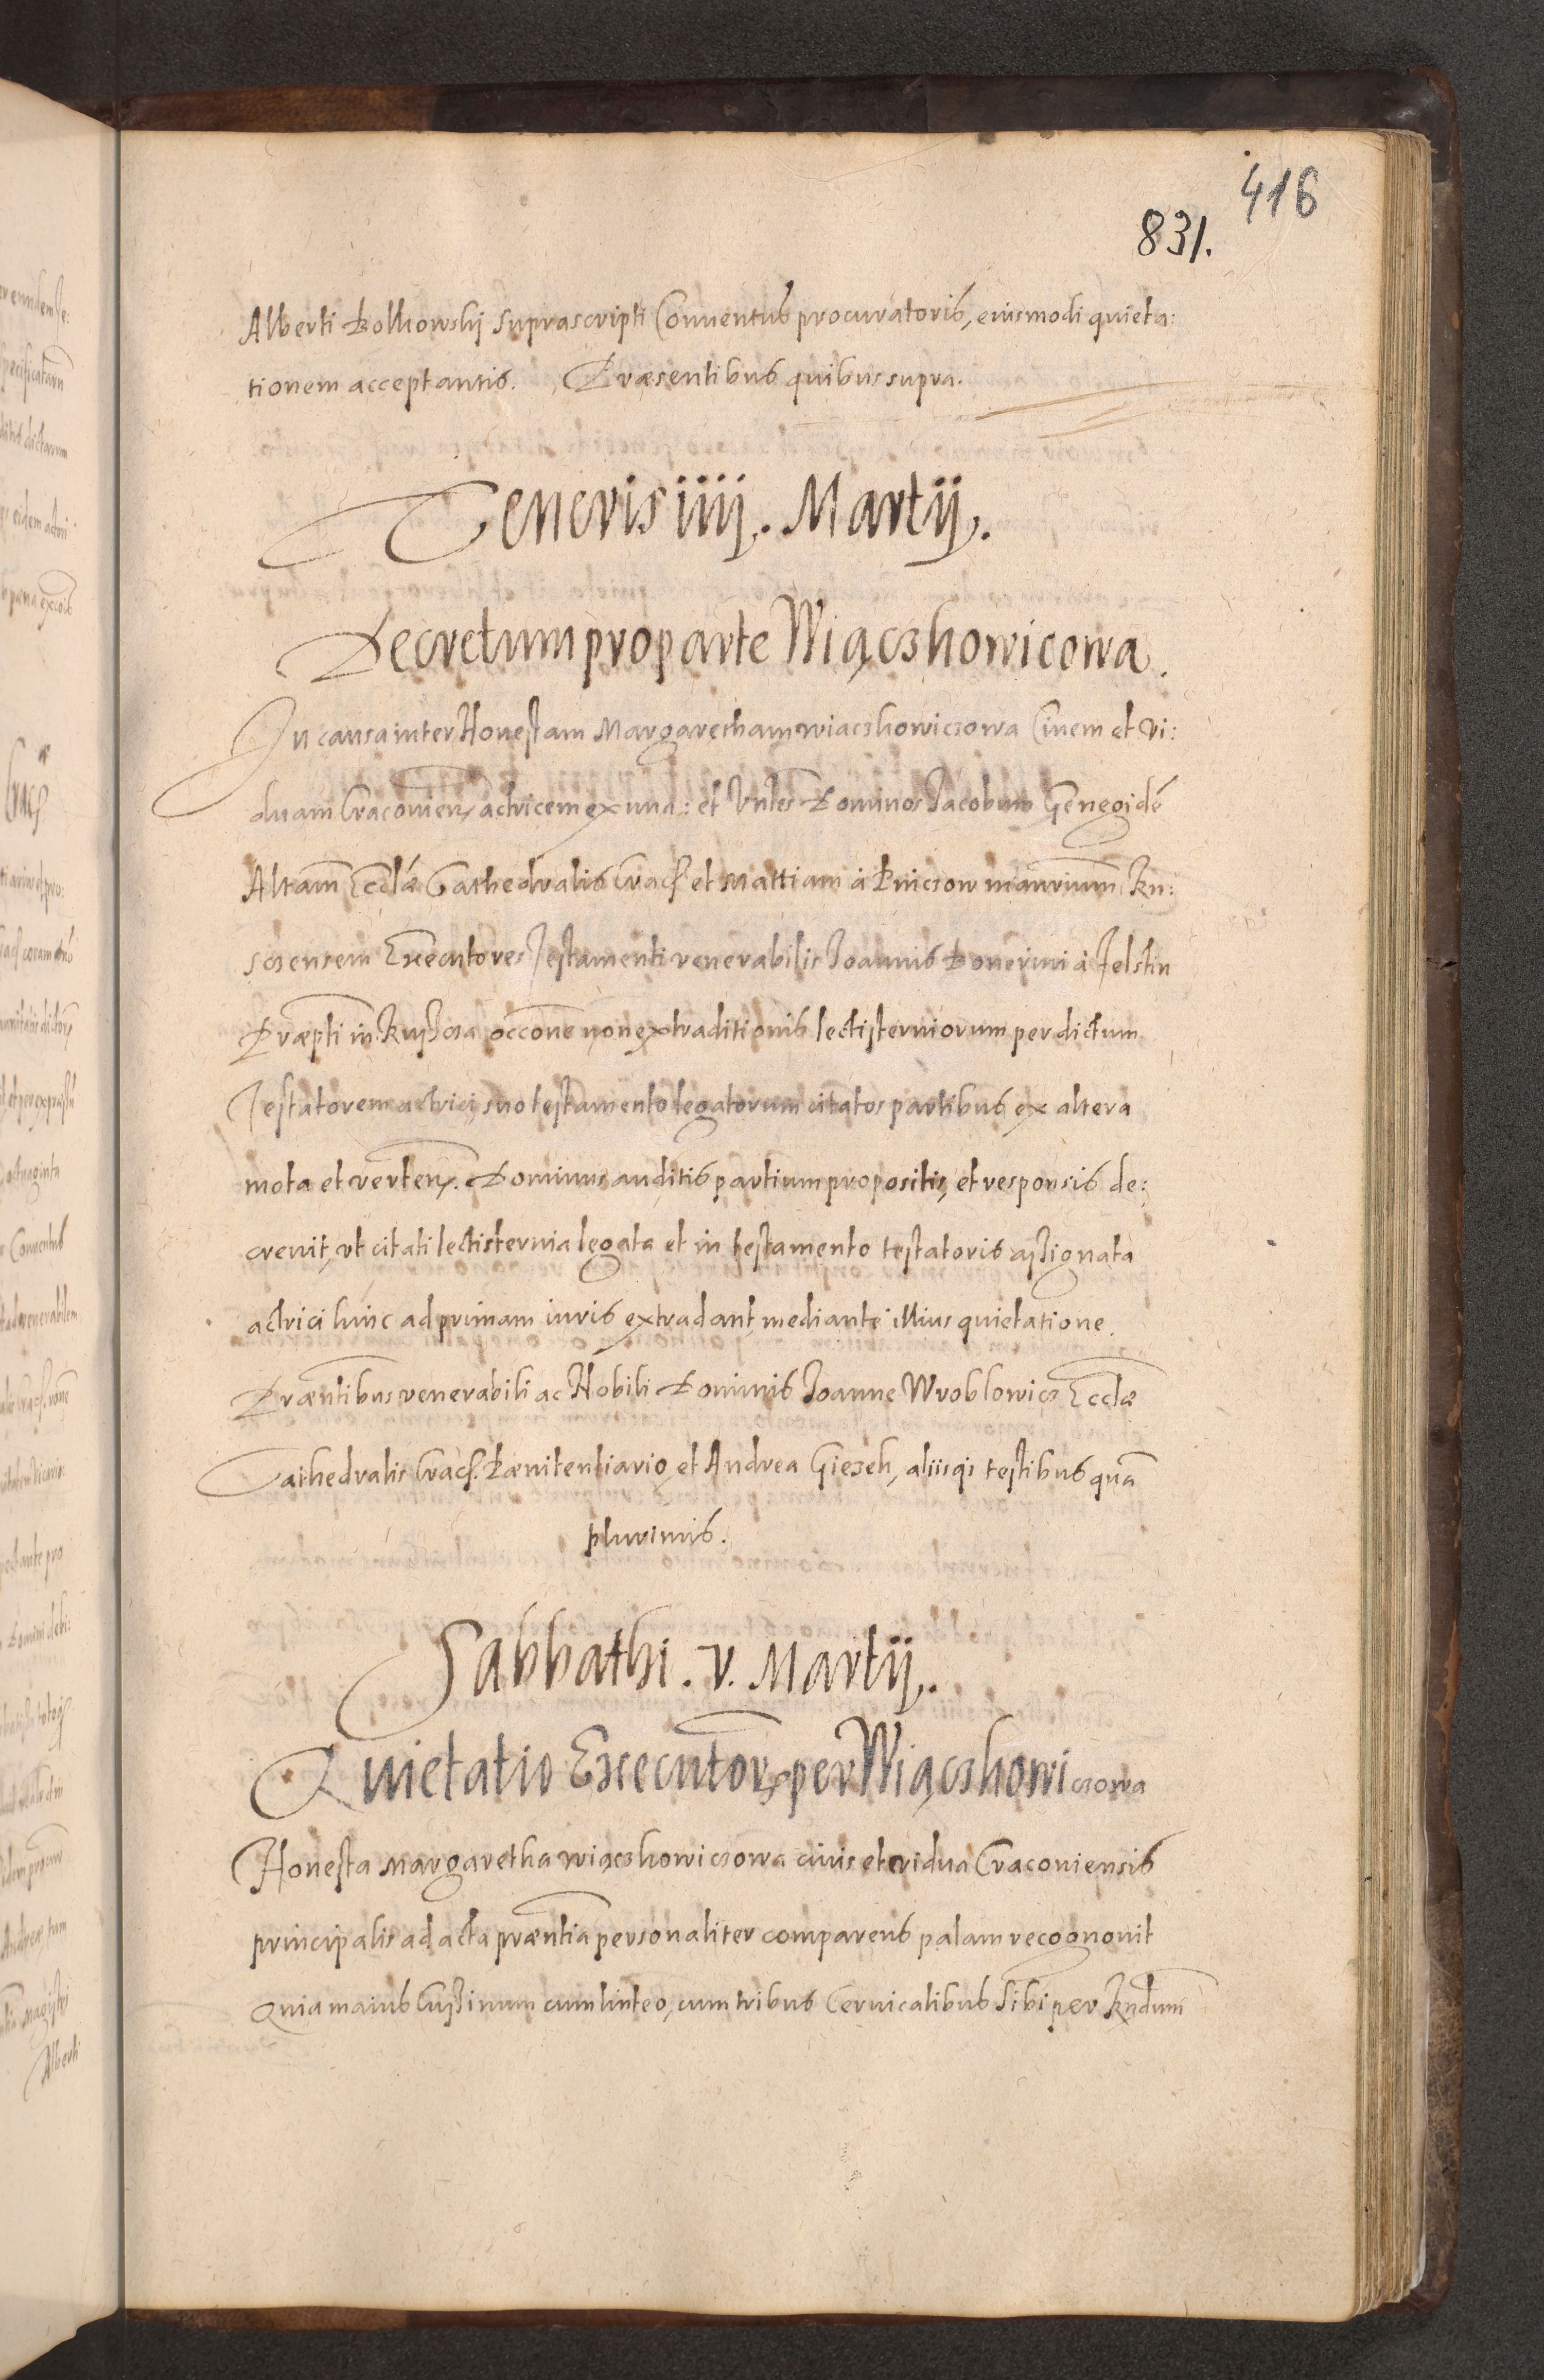 416
831.
Alberti Bolkowskj suprascripti Conuentus procuratoris, eiusmodi quieta:
tionem acceptantis. Præsentibus quibus supra.
Veneris iiij. Martij.
Decretum pro parte Wiączkowicowa.
In causa inter Honestam Margaretham wiaczkowiczowa Ciuem et vi:
duam Cracouien actricem ex una: et Vnles Dominos Jacobum
Altam Ecclæ Cathedralis Crac et Mattiam à
Executores Testamenti venerabilis Joannis Bonerini à Felstin
Præpti in occone non extraditionis lectisterniorum per dictum
Testatorem actrici suo testamento legatorum citatos partibus ex altera
mota et verten. Dominus auditis partium propositis, et responsis de:
creuit, vt citati lectisternia legata et in testamento testatoris assignata
actrici hinc ad primam iuris extradant, mediante illius quietatione.
Præntibus venerabili ac Nobili Dominis Joanne Wroblowicz Ecclæ
Cathedralis Crac. Pænitentiario, et Andrea Giezek, aliisqs testibus quam
plurimis.
Sabbathi. v. Martij.
Quietatio Executor per Wiączkowiczowa
Honesta Margaretha wiączkowiczowa ciuis et vidua Cracouiensis
principalis ad acta præntia personaliter comparens palam recognouit
Quia maius Cussinum cum linteo, cum tribus Ceruicalibus sibi per Rndum
Alberti